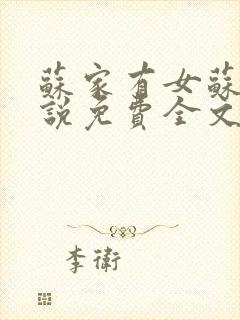 蘇家有女蘇
說免費全文
李衛